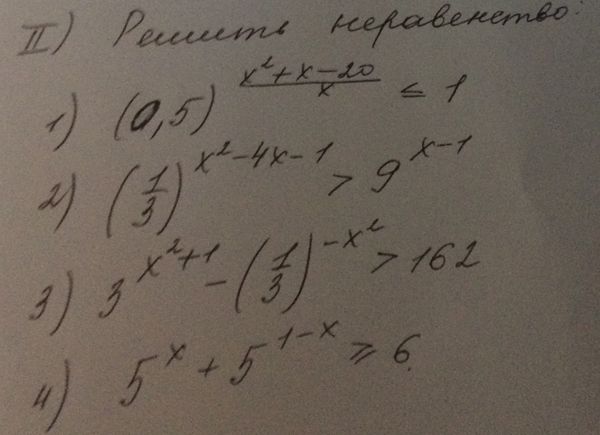 II) Решить неравенство:
1) (0,5)^((x²+x-20)/x) ≤ 1
2) (1/3)^(x²-4x-1) > 9^(x-1)
3) 3^(x²+1) - (1/3)^(-x²) > 162
4) 5^x + 5^(1-x) ≥ 6.